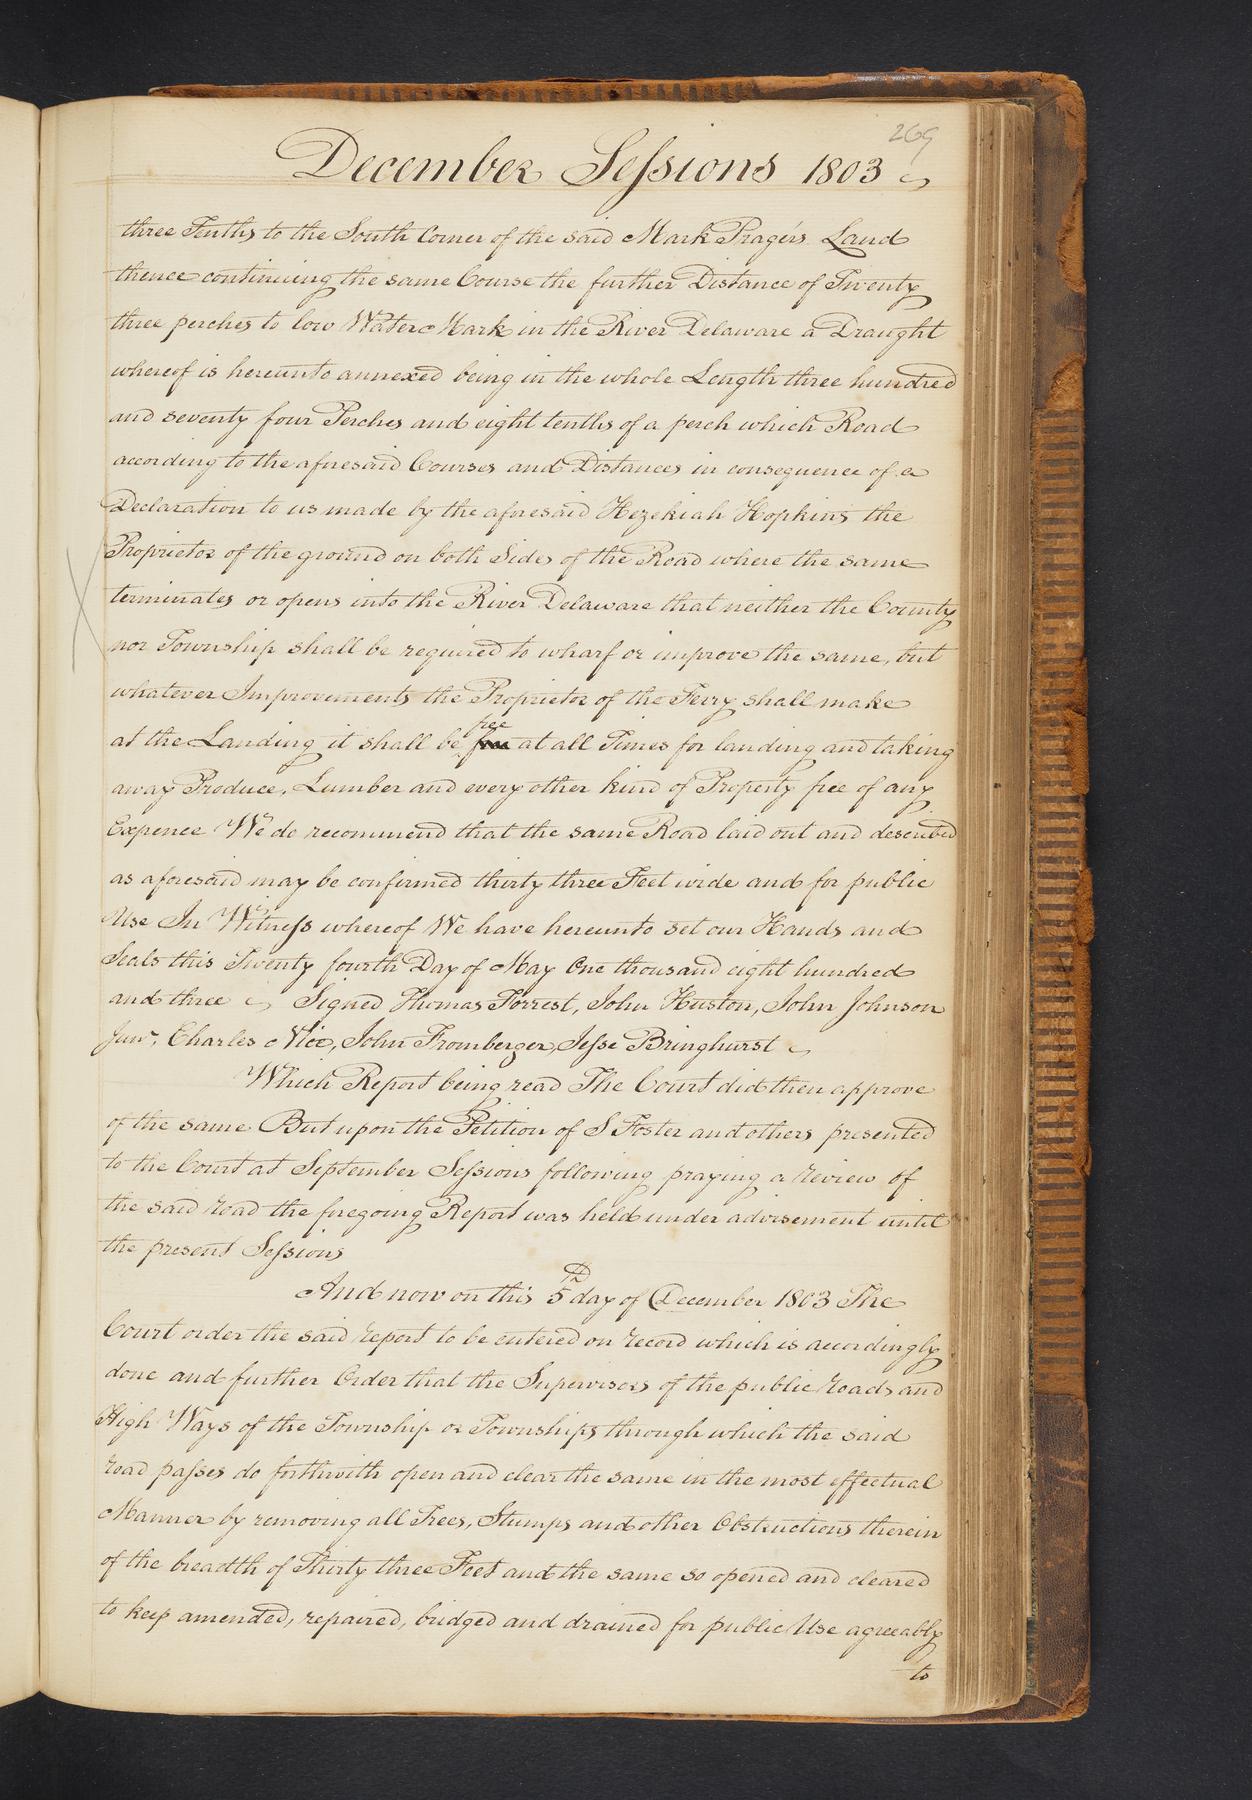 269
December Sessions 1803
three Tenths to the South Corner of the said Mark Prager's Land
thence continuing the same Course the further Distance of Twenty
three perches to low Water Mark in the River Delaware a Draught
whereof is hereunto annexed being in the whole Length three hundred
and seventy four Perches and eight tenths of a perch which Road
according to the aforesaid Courses and Distances in consequence of a
Declaration to us made by the aforesaid Hezekiah Hopkins the
Proprietor of the ground on both Sides of the Road where the same
terminates or opens into the River Delaware that neither the County
nor Township shall be required to wharf or improve the same, but
whatever Improvements the Proprietor of the Ferry shall make
free
at the Landing it shall be at all Times for landing and taking
away Produce, Lumber and every other kind of Property free of any
Expence We do recommend that the same Road laid out and described
as aforesaid may be confirmed thirty three Feet wide and for public
Use In Witness whereof We have hereunto set our Hands and
Seals this Twenty fourth Day of May One thousand eight hundred
and three Signed Thomas Forrest, John Huston, John Johnson
Junr, Charles Nice, John Fromberger, Jesse Bringhurst
Which Report being read The Court did then approve
of the same But upon the Petition of S Foster and others presented
to the Court at September Sessions following praying a review of
the said road the foregoing Report was held under advisement until
the present Sessions
And now on this 5th day of December 1803 The
Court order the said report to be entered on record which is accordingly
done and further Order that the Supervisors of the public roads and
High Ways of the Township or Townships through which the said
road passes do forthwith open and clear the same in the most effectual
Manner by removing all Trees, Stumps and other Obstructions therein
of the breadth of Thirty three Feet and the same so opened and cleared
to keep amended, repaired, bridged and drained for public Use agreeably
to